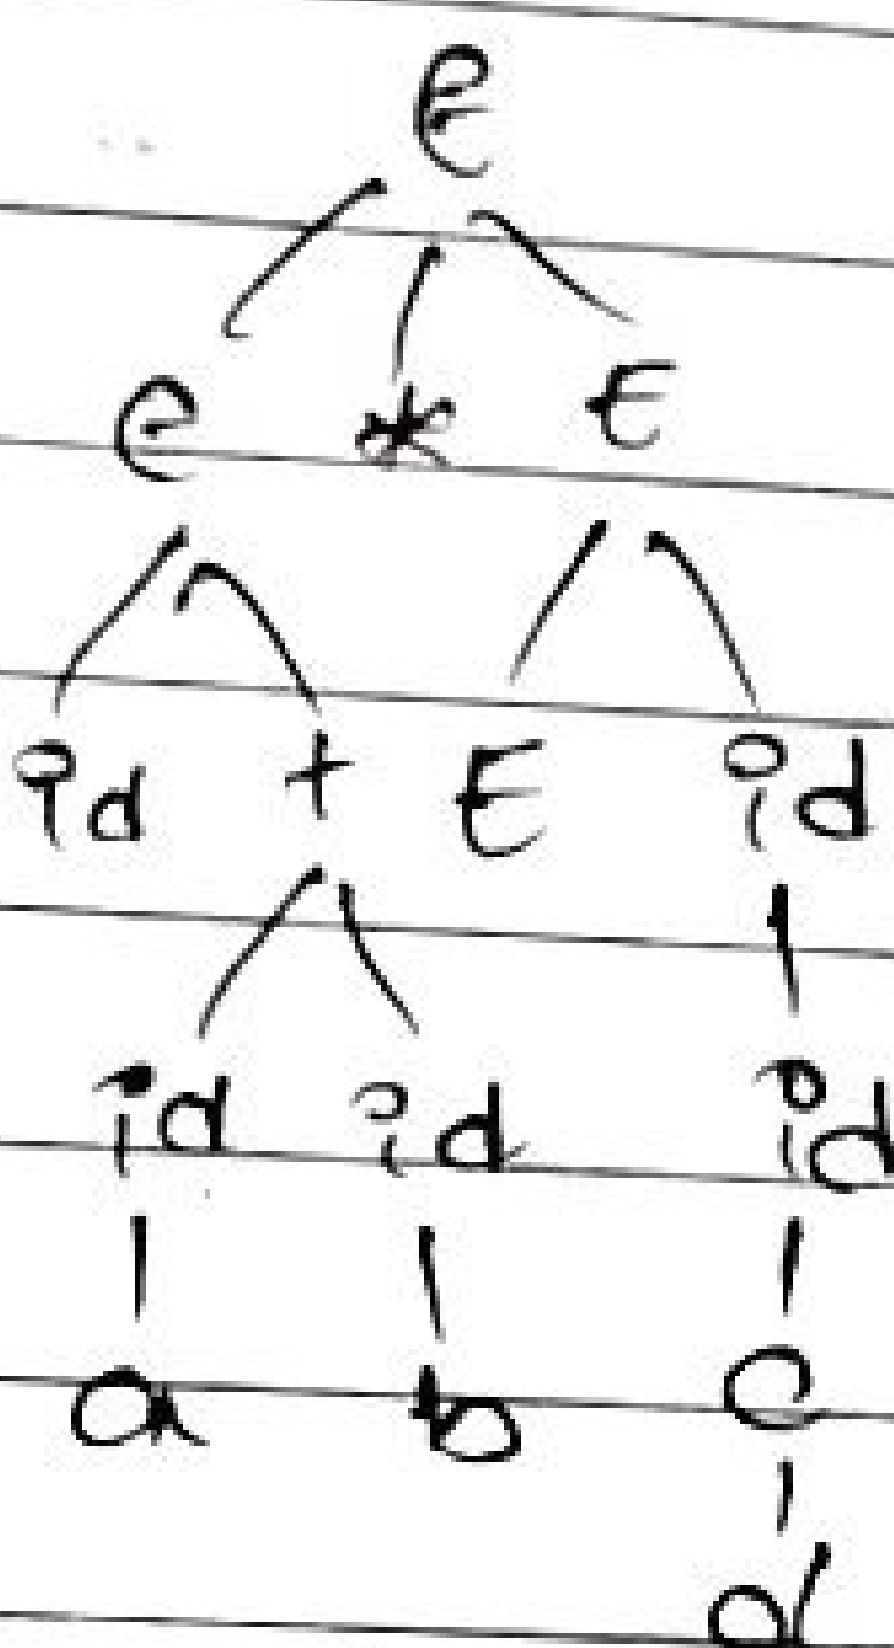 E
e * E
id + E id
id id id
a b c
d